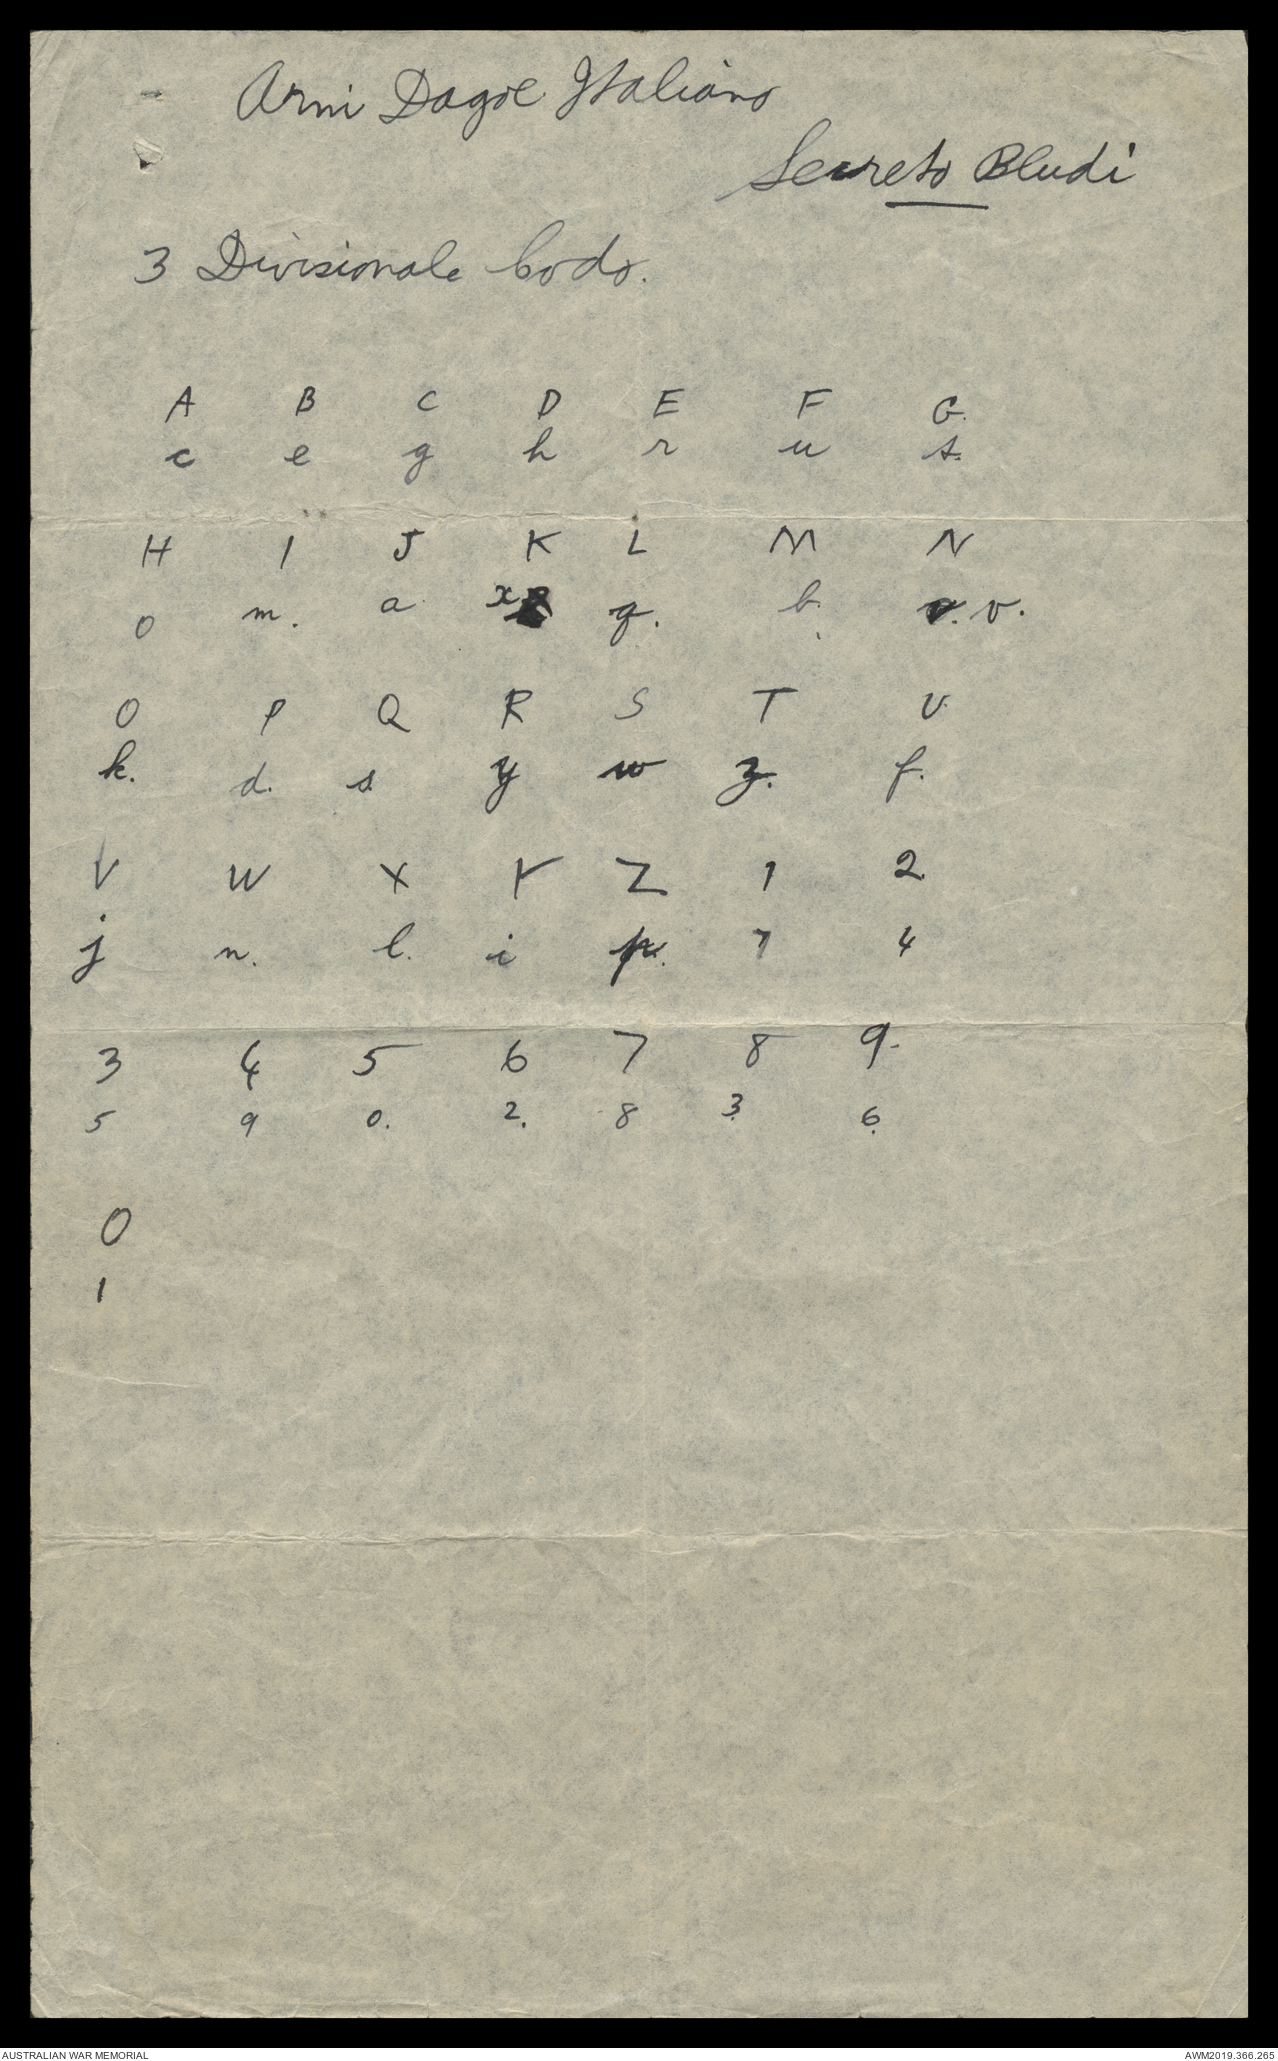 Arni Dagoe Italiano
Secreto Bludi
3 Divisionale Codo.
A B C D E F G.
c e g h r u t.
H I J K L M N
o m. a. x q. b. v. v.
O P Q R S T U
k. d. s y w z. f.
V W X Y Z 1 2
j n. l. i p. 7 4
3 4 5 6 7 8 9.
5 9 0. 2. 8 3. 6.
0
1
AUSTRALIAN WAR MEMORIAL
AWM2019.366.265